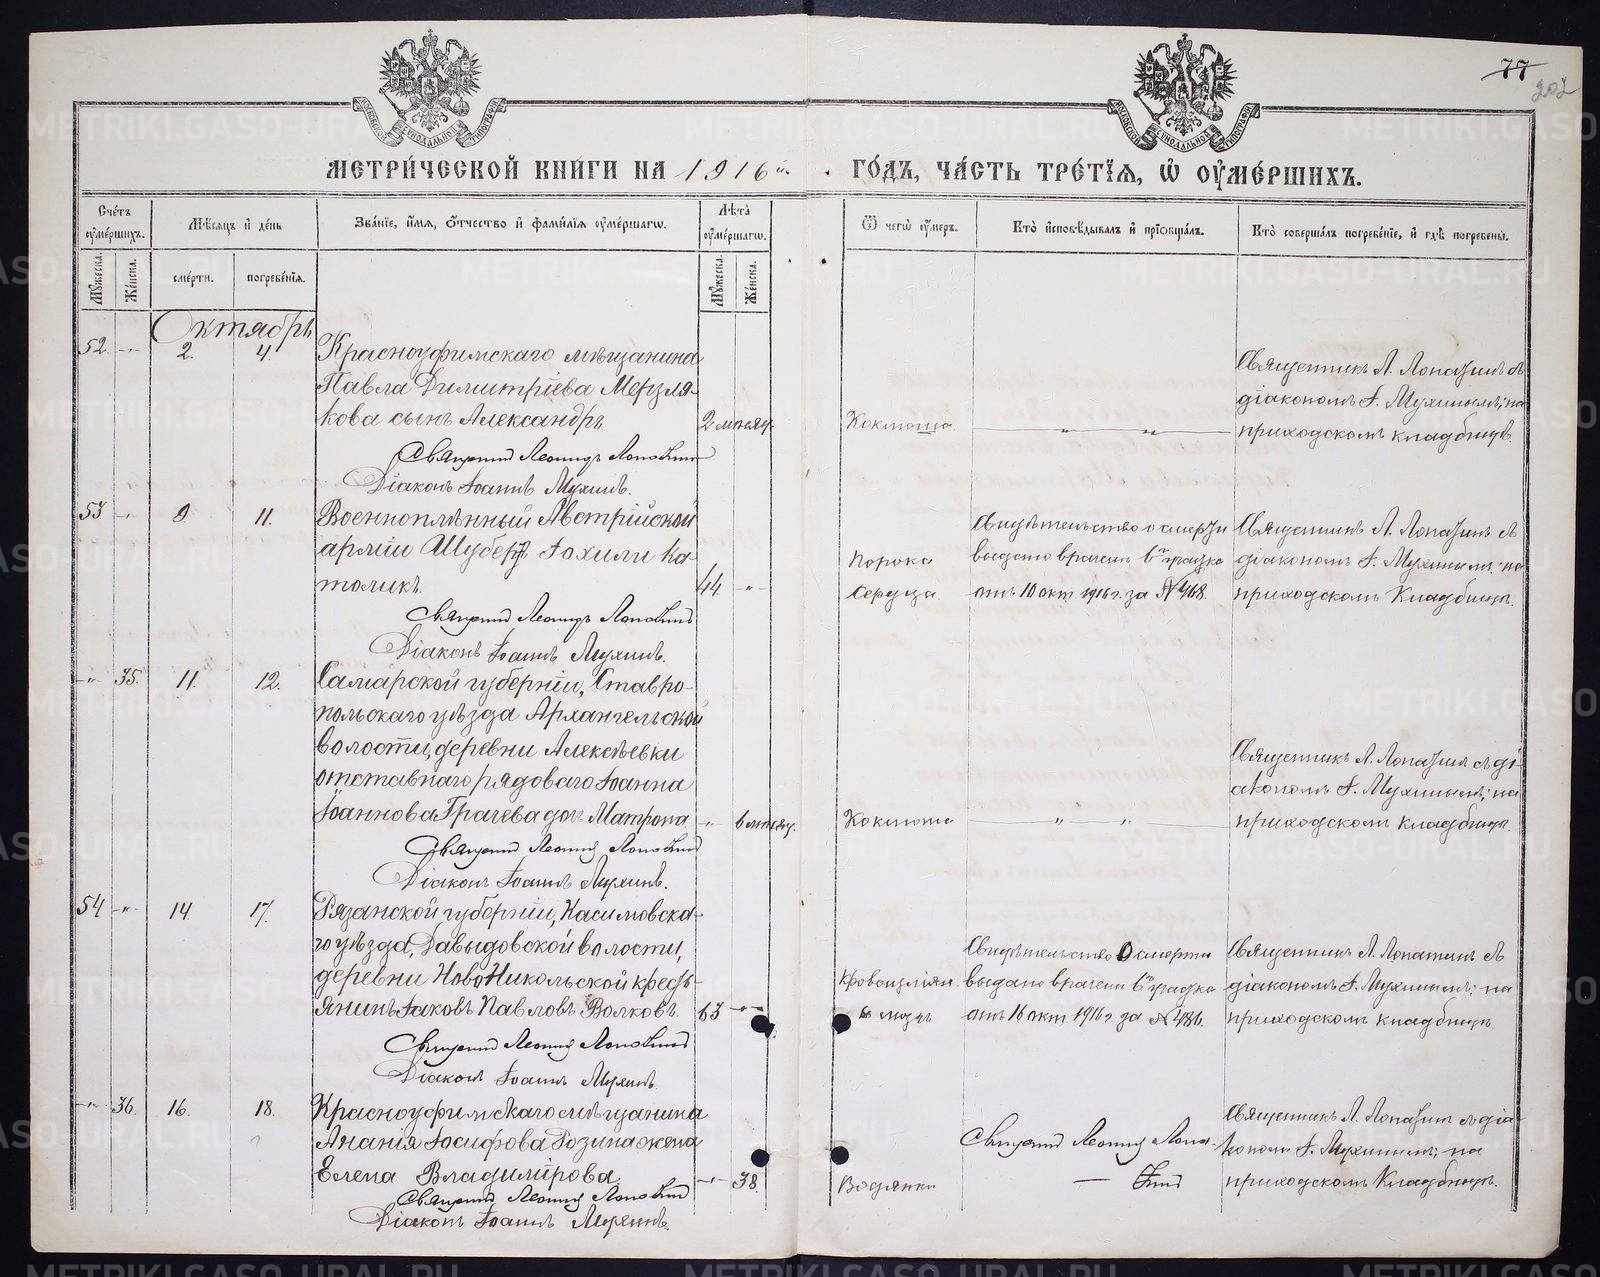 77
202
МЕТРИ́ЧЕСКОЙ КНИ́ГИ НА 1916 й. ГО́ДЪ, ЧА́СТЬ ТРЕ́ТЇѦ, Ѡ҆ ОУ҆МЕ́РШИХЪ.
Сче́тъ оу҆ме́ршихъ.
Мѣ́сѧцъ и҆ де́нь
Зва́нїе, и҆́мѧ, ѻ҆́тчество и҆ фами́лїѧ оу҆ме́ршагѡ.
Лѣ́та оу҆ме́ршагѡ.
Ѿ чегѡ̀ оу҆́меръ.
Кто̀ и҆сповѣ́дывалъ и҆ прїѡбща́лъ.
Кто̀ соверша́лъ погребе́нїе, и҆ гдѣ̀ погребены̀.
Мꙋ́жеска.
Же́нска.
сме́рти.
погребе́нїѧ.
Мꙋ́жеска.
Же́нска.
Октябрь
52. -"- 2. 4. Красноуфимскаго мѣщанина
Павла Димитріева Мерзля-
кова сынъ Александръ 2 мѣсяц.
Священник Леонидъ Лопатин
Діаконъ Іоаннъ Мухинъ.
Коклюша
" "
Священникъ Л. Лопатинъ съ
діакономъ І. Мухинымъ; на
приходскомъ кладбищѣ.
53 -"- 9. 11. Военноплѣнный Австрійской
арміи Шубертъ Іохими ка-
толикъ. 44 -"-
Священник Леонидъ Лопатин
Діаконъ Іоаннъ Мухинъ.
Порока
сердца.
Свидѣтельство о смерти
выдано врачемъ
отъ 10 окт. 1916 г. за № 468.
Священникъ Л. Лопатинъ съ
діакономъ І. Мухинымъ; на
приходскомъ кладбищѣ.
-"- 35. 11. 12. Самарской губерніи, Ставро-
польскаго уѣзда Архангельской
волости, деревни Алексѣевки
отставнаго рядоваго Іоанна
Іоаннова Грачева дочь Матрона -"- 6 мѣсяц.
Священник Леонид Лопатин
Діаконъ Іоаннъ Мухинъ.
Коклюша
" "
Священникъ Л. Лопатинъ съ ді-
акономъ І. Мухинымъ; на
приходскомъ кладбищѣ.
54 -"- 14 17. Рязанской губерніи, Касимовска-
го уѣзда, Давыдовской волости,
деревни НовоНикольской кресть-
янинъ Іаковъ Павловъ Волковъ. 63 -"-
Священник Леонид Лопатин
Діаконъ Іоаннъ Мухинъ.
Кровоизліян.
въ мозгъ
Свидѣтельство о смерти
выдано врачемъ
отъ 16 окт. 1916 г. за № 486.
Священникъ Л. Лопатинъ съ
діакономъ І. Мухинымъ; на
приходскомъ кладбищѣ.
-"- 36. 16. 18. Красноуфимскаго мѣщанина
Ананія Іосифова Розина жена
Елена Владимірова -"- 38.
Священник Леонид Лопатин
Діаконъ Іоаннъ Мухинъ.
Водянки
Священник Леонид Лопа-
тин
Священникъ Л. Лопатинъ съ діа-
кономъ І. Мухинымъ; на
приходскомъ кладбищѣ.
METRIKI.GASO-URAL.RU